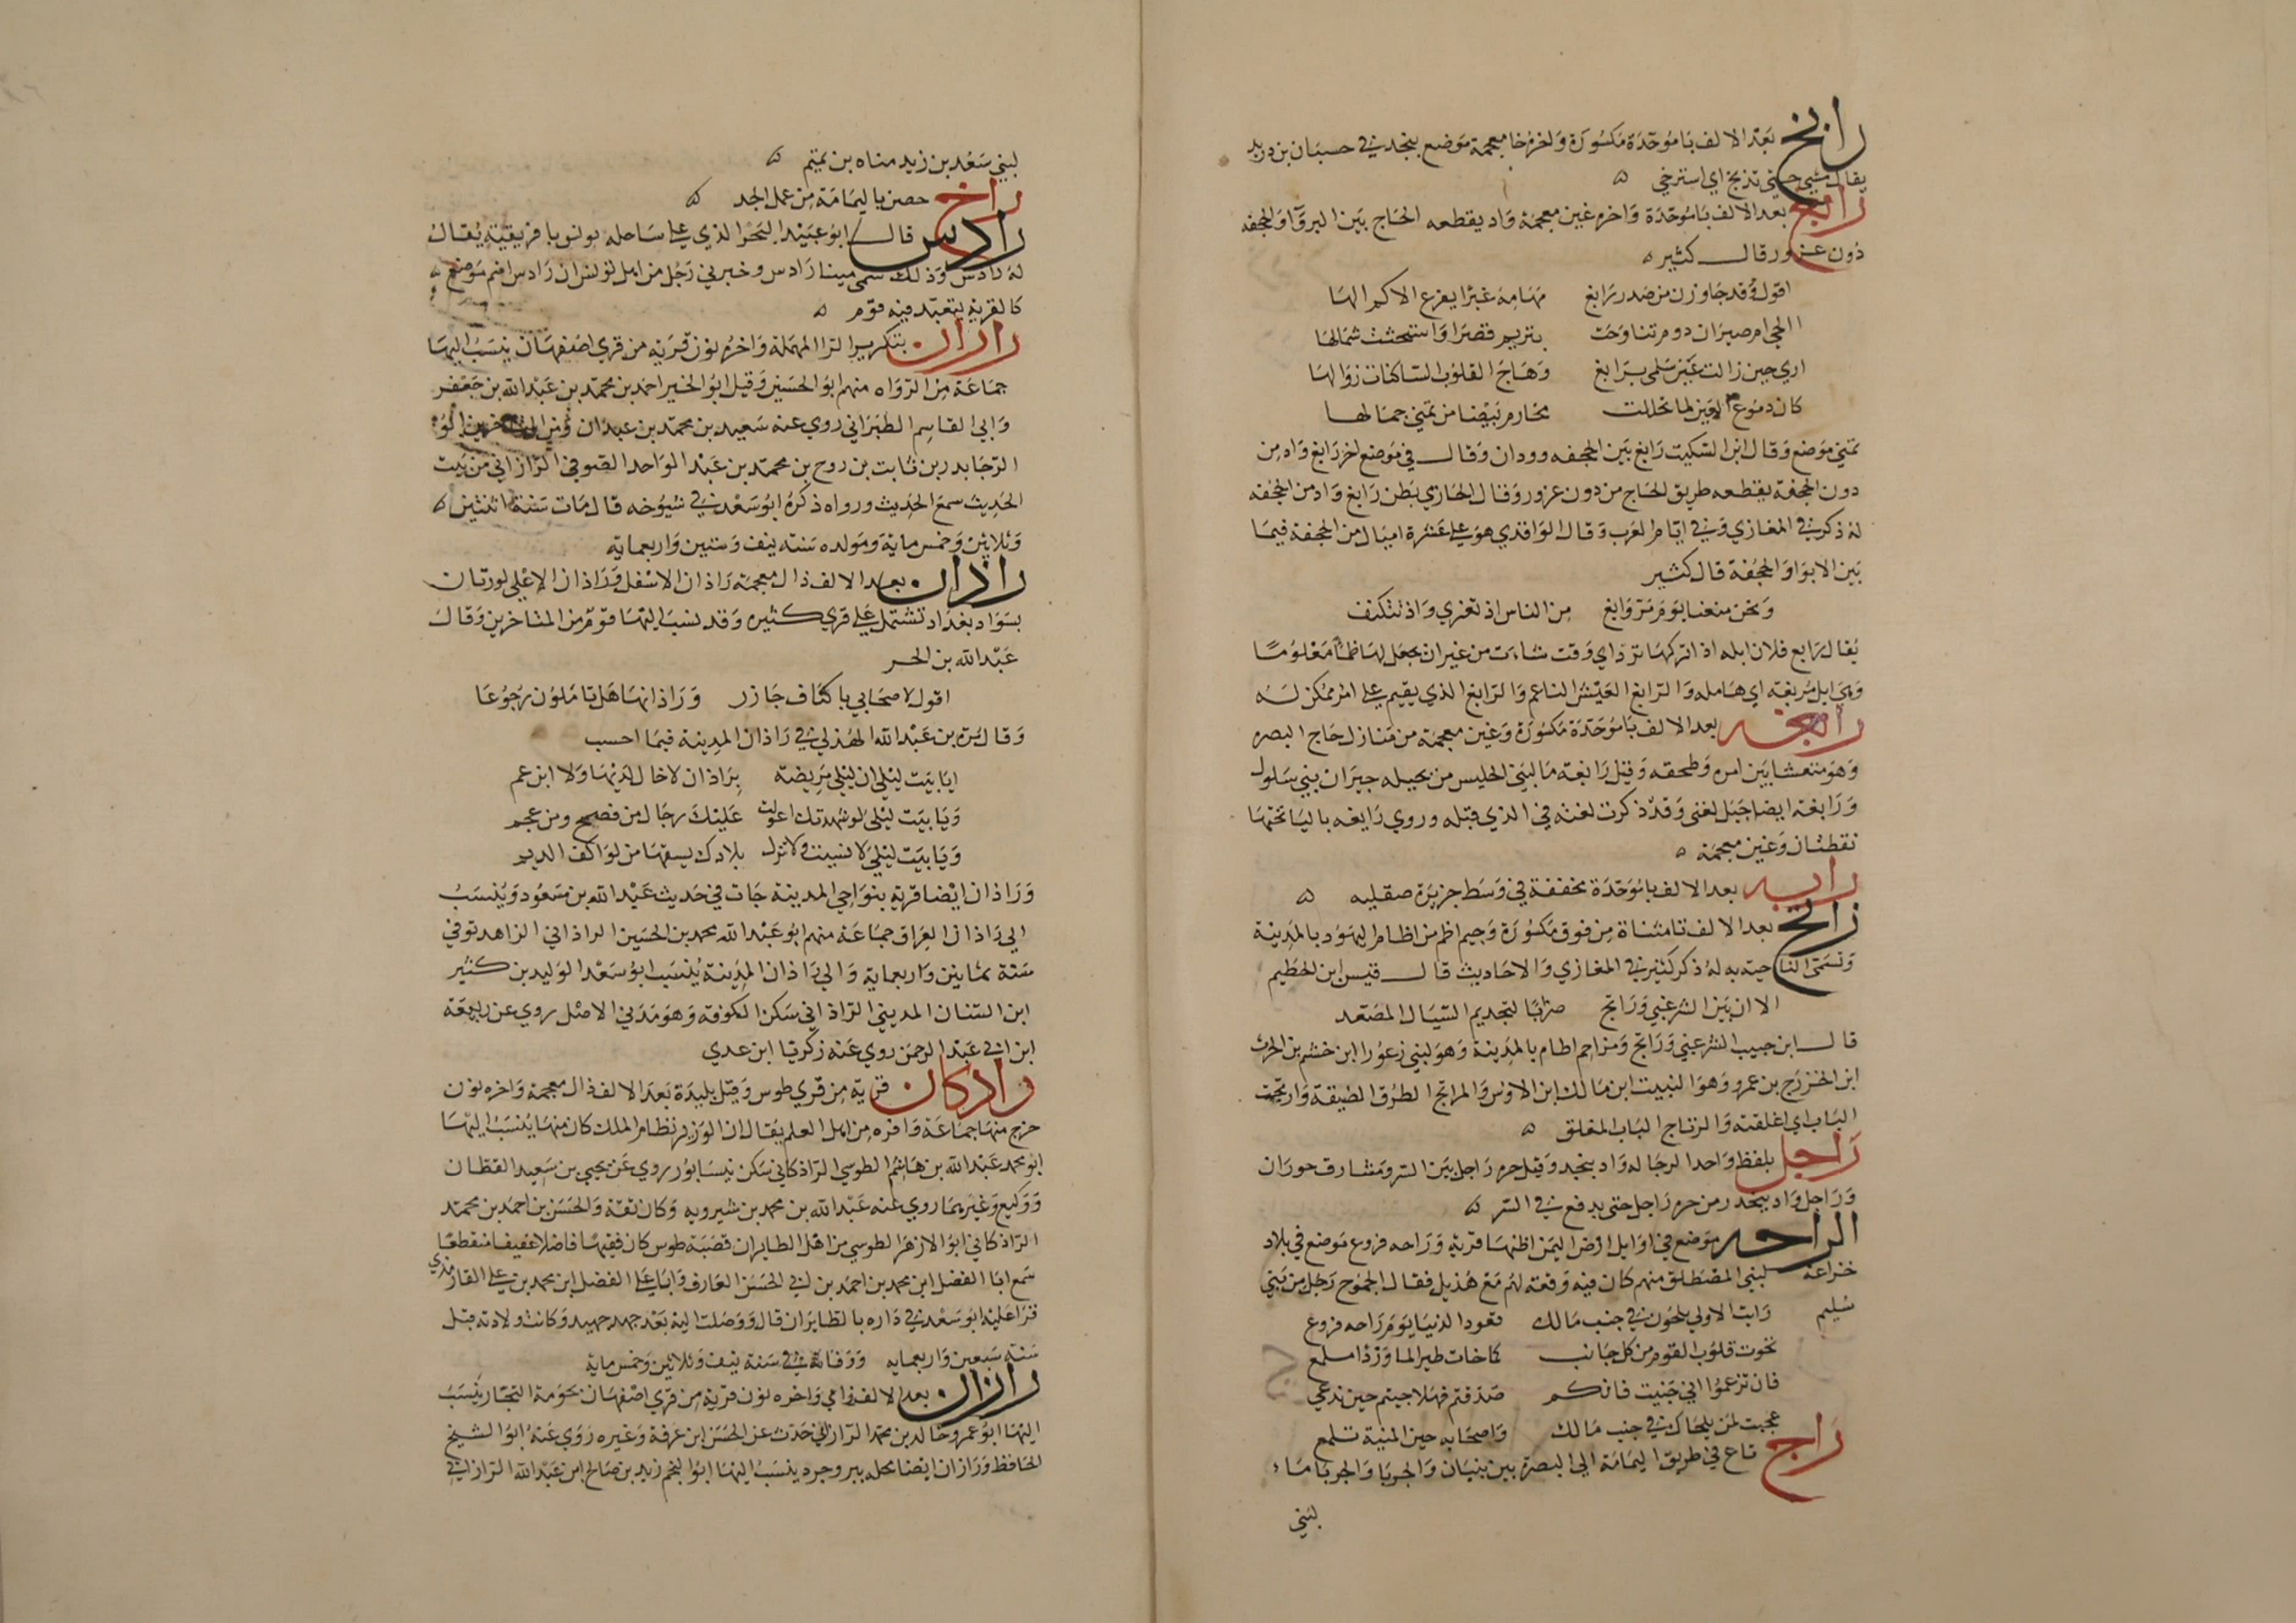 رابخ بعد الالف با موحدة مكسورة واخره خا معجمة موضع بنجد في حسبان بن دريد
يقال مشي حتى تربخ اي استرخي
رابغ بعد الالف با موحدة واخره غين معجمة واد يقطعه الحاج بين البزوا والجحفه
دون عزور قال كثير
اقول وقد جاوزن من صدر رابغ مهامه غبرا يفرع الاكم الها
االحي ام صيران دوم تناوحت بتريم قصرا واستحثت شمالها
اري حين زالت عير سلمي برابغ وهاج القلوب الساكنات زوالها
كان دموع العين لما تخللت مخارم بيضا من تمني جمالها
تمني موضع وقال ابن السكيت رابغ بين الجحفه وودان وقال في موضع اخر رابغ واد من
دون الجحفة يقطعه طريق الحاج من دون عزور وقال الحازمي بطن رابغ واد من الجحفه
له ذكر في المغازي وفي ايام العرب وقال الواقدي هو علي عشرة اميال من الجحفة فيما
بين الابوا والجحفة قال كثير
ونحن منعنا يوم مر ورابغ من الناس اذ تغزي واذ تتكنف
يقال رابغ فلان ابله اذا تركها ترد اي وقت شاءت من غير ان يجعل لها ظمأ معلوما
وهي ابل مربغة اي هامله والرابغ العيش الناعم والرابغ الذي يقيم علي امر ممكن له
رابغه بعد الالف با موحدة مكسورة وغين معجمة من منازل حاج البصره
وهو متعشا بين امره وطخفه وقيل رابغة ما لبني الحليس من بجيله جيران بني سلول
ورابغة ايضا جبل لغني وقد ذكرت لغته في الذي قبله وروي رايغه باليا تحتها
نقطتان وغين معجمة
رابه بعد الالف با موحدة مخففة في وسط جزيرة صقليه
راتج بعد الالف تا مثناة من فوق مكسورة وجيم اطم من اطام اليهود بالمدينة
وتسمي الناحية به له ذكر كثير في المغازي والاحاديث قال قيس ابن الحطيم
الا ان بين الشرعبي وراتج ضرابا لتجديم السيال المصعد
قال ابن حبيب الشرعبي وراتج ومزاحم اطام بالمدينة وهو لبني زعورا ابن خشم بن الحرث
ابن الخزرج بن عمرو وهو النبيت ابن مالك ابن الاوس والمراتج الطرق الضيقة وارتجت
الباب اي اغلقته والرتاج الباب المغلق
راجل بلفظ واحد الرجاله واد بنجد وقيل حره راجل بين السر ومشارف حوران
وراجل واد ينحدر من حره راجل حتي يدفع في السر
الراحه موضع في اوايل ارض اليمن اظنها قرية وراحه فروع موضع في بلاد
خزاعة لبني المصطلق منهم كان فيه وقعة لهم مع هذيل فقال الجموح رجل من بني
سليم رايت الاولي يلحون في جنب مالك قعودا لدينا يوم راحه فروع
تخوت قلوب القوم من كل جانب كما خات طير الما ورد ملمع
فان تزعموا اني جنيت فانكم صدقتم فهلا جيتم حين ندعي
عجبت لمن يلحاك في جنب مالك واصحابه حين المنية تلمع
راح قاع في طريق اليمامة الي البصرة بين بنبان والجربا والجربا ماء
لبني
لبني سعد بن زيد مناه بن تميم
راخ حصن باليمامة من عمل الجد
رادس قال ابو عبيد البحر الذي علي ساحله تونس بافريقية يقال
له رادس وذلك سمي مينا رادس وخبرني رجل من اهل تونس ان رادس اسم موضع
كالقرية يتعبد فيه قوم
راران بتكرير الرا المهملة واخره نون قرية من قري اصفهان ينسب اليها
جماعة من الرواه منهم ابو الحسين وقيل ابو الخير احمد بن محمد بن عبد الله بن جعفر
وابي القاسم الطبراني روي عنه سعيد بن محمد بن عبدان ومن المتاخرين ابو
الرجا بدر بن ثابت بن روح بن محمد بن عبد الواحد الصوفي الراراني من بيت
الحديث سمع الحديث ورواه ذكره ابو سعد في شيوخه قال مات سنة اثنتين
وثلاثين وخمس ماية ومولده سنة نيف وستين واربعماية
راذان بعد الالف ذال معجمة راذان الاسفل وراذان الاعلي كورتان
بسواد بغداد تشتمل علي قري كثيره وقد نسب اليها قوم من المتاخرين وقال
عبد الله بن الحر
اقول لاصحابي باكناف جازر وراذانها هل تاملون رجوعا
وقال مرة بن عبد الله الهذلي في راذان المدينة فيما احسب
ايا بيت ليلي ان ليلي مريضة براذان لا خال لديها ولا ابن عم
ويا بيت ليلي لو شهدتك اعولت عليك رجال من فصيح ومن عجم
ويا بيت ليلي لا نسيت ولا تزل بلادك يسقيها من لواكف الديم
وراذان ايضا قرية بنواحي المدينة جات في حديث عبد الله بن مسعود وينسب
الي راذان العراق جماعة منهم ابو عبد الله محمد بن الحسين الراذاني الزاهد توفي
سنة ثمانين واربعماية والي راذان المدينة ينسب ابو سعد الوليد بن كثير
ابن السنان المديني الراذاني سكن الكوفة وهو مدني الاصل روي عن ربيعة
ابن ابي عبد الرحمن روي عنه زكريا ابن عدي
راذكان قرية من قري طوس وقيل بليدة بعد الالف ذال معجمة واخره نون
خرج منها جماعة وافره من اهل العلم يقال ان الوزير نظام الملك كان منها ينسب اليها
ابو محمد عبد الله بن هاشم الطوسي الراذكاني سكن نيسابور روي عن يحيي بن سعيد القطان
ووكيع وغيرهما روي عنه عبد الله بن محمد بن شيرويه وكان ثقة والحسن بن احمد بن محمد
الراذكاني ابو الازهر الطوسي من اهل الطابران قصبة طوس كان فقيها فاضلا عفيفا منقطعا
سمع ابا الفضل ابن محمد بن احمد بن ابي الحسن العارف وابا علي الفضل ابن محمد بن علي الفارمذي
قرا عليه ابو سعد في داره بالطابران قال ووصلت اليه بعد جهد جهيد وكانت ولادته قبل
سنة سبعين واربعمايه ووفاته في سنة نيف وثلاثين وخمس ماية
رازان بعد الالف زامي واخره نون قرية من قري اصفهان بحومة التجار ينسب
اليها ابو عمرو خالد بن محمد الرازاني حدث عن الحسن ابن عرفة وغيره روي عنه ابو الشيخ
الحافظ ورازان ايضا محله ببروجرد ينسب اليها ابو النجم زيد بن صالح ابن عبد الله الرازاني